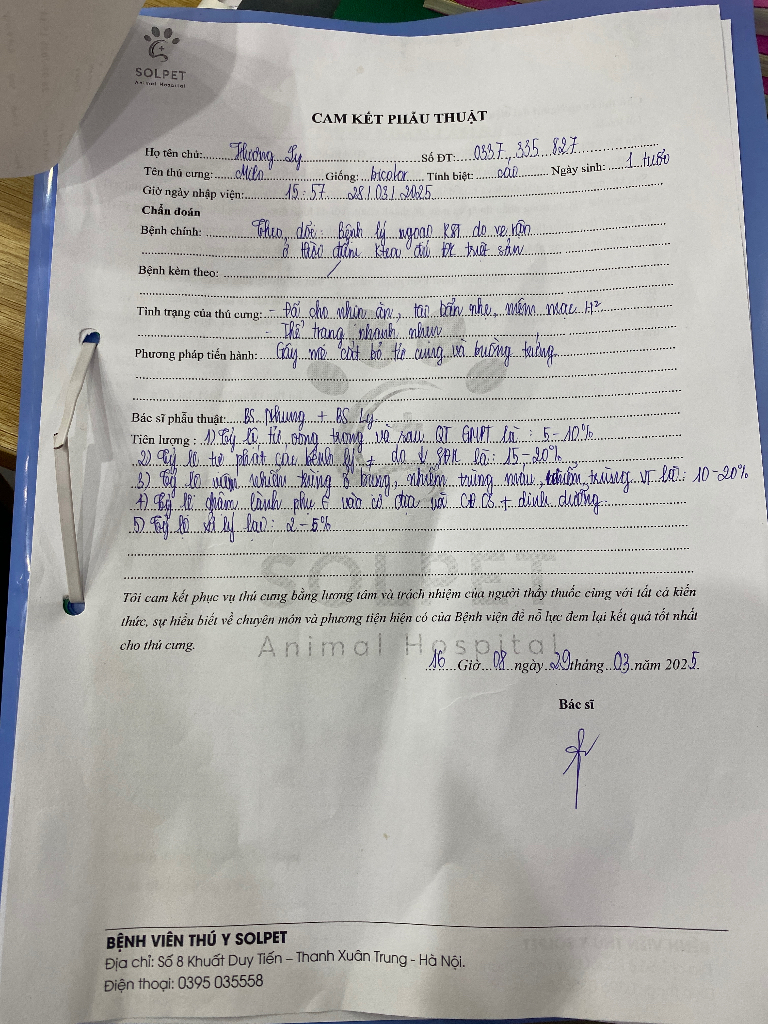 SOLPET
Animal Hospital
CAM KẾT PHẪU THUẬT
Họ tên chủ: Thương Ly Số ĐT: 0337, 335 827
Tên thú cưng: Milo Giống: bicolor Tính biệt: cái Ngày sinh: 1 tuổi
Giờ ngày nhập viện: 15:57 28/03/2025
Chẩn đoán
Bệnh chính: Theo dõi Bệnh lý ngoại KST do ve rận
ở thời điểm đủ đk triệt sản
Bệnh kèm theo: /
Tình trạng của thú cưng: - Đã cho nhịn ăn, tai bẩn nhẹ, niêm mạc H²
- Thể trạng nhanh nhẹn
Phương pháp tiến hành: Gây mê cắt bỏ tử cung và buồng trứng
Bác sĩ phẫu thuật: BS Nhung + BS Ly
Tiên lượng : 1) Tỷ lệ tử vong trong và sau QT GMPT là : 5-10%
2) Tỷ lệ tự phát các bệnh lý + do là: 15-20%
3) Tỷ lệ nhiễm trùng ổ bụng, nhiễm trùng máu, nhiễm trùng VT là: 10-20%
4) Tỷ lệ chậm lành phụ € vào cơ địa và CĐCS + dinh dưỡng
5) Tỷ lệ xả lý lại: 2-5%
Tôi cam kết phục vụ thú cưng bằng lương tâm và trách nhiệm của người thầy thuốc cùng với tất cả kiến
thức, sự hiểu biết về chuyên môn và phương tiện hiện có của Bệnh viện để nỗ lực đem lại kết quả tốt nhất
cho thú cưng.
SOLPET
Animal Hospital
16 Giờ 08 ngày 29 tháng 03 năm 2025
Bác sĩ
BỆNH VIỆN THÚ Y SOLPET
Địa chỉ: Số 8 Khuất Duy Tiến – Thanh Xuân Trung - Hà Nội.
Điện thoại: 0395 035558